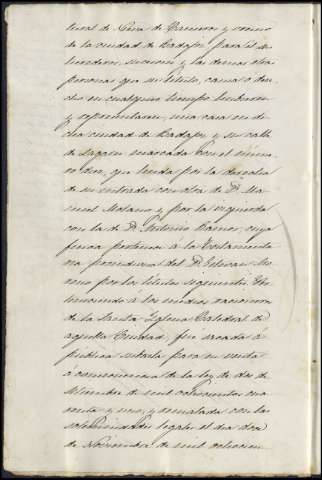 tural de Feria de Barrueco y vecino
de la ciudad de Badajoz, para él, sus
herederos, sucesion y las demas otras
personas que su titulo, causa o dere-
cho en cualquier tiempo hubieren
y representaren, una casa en di-
cha ciudad de Badajoz y su calle
de Lagares marcada con el núme-
ro dos, que linda por la derecha
de su entrada con otra de D. Ma-
nuel Molano y por la izquierda
con la de D. Antonio Ramos, cuya
finca pertenece á la Testamenta-
ria provisional del D. Estevan Mo-
reno por los titulos siguientes. Per-
teneciendo á los medios racioneros
de la Santa Iglesia Catedral de
aquella Ciudad, fué sacada á
publica subasta para su venta
á consecuencia de la ley de dos de
Setiembre de mil ochocientos cua-
renta y uno; y rematada con las
solemnidades legales el dia doce
de Noviembre de mil ochocien-